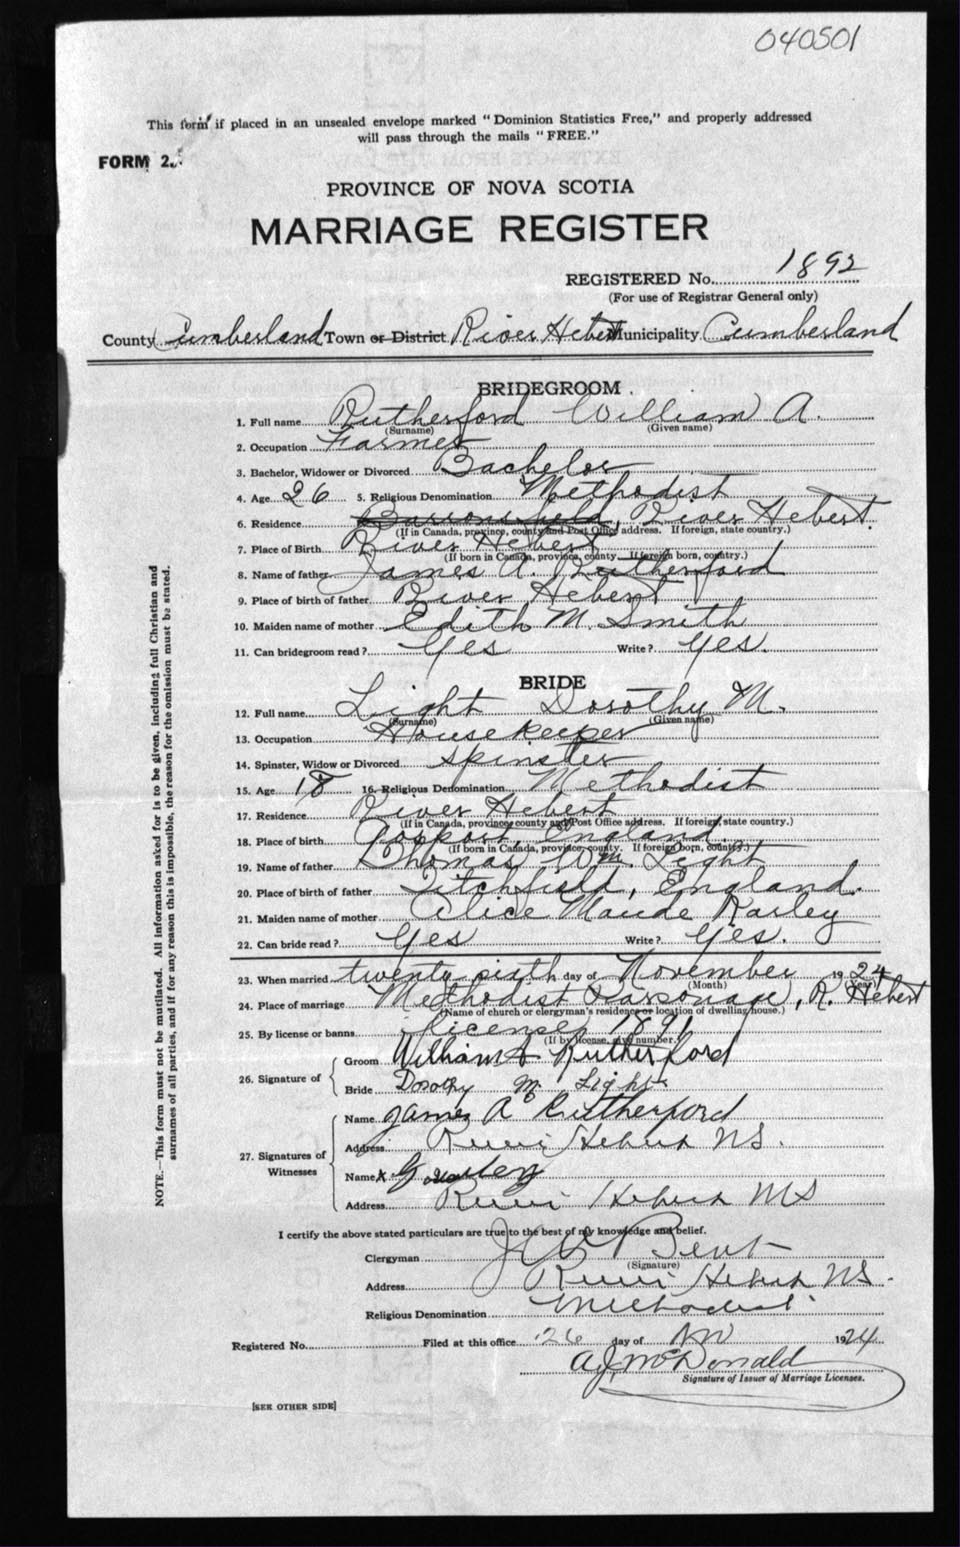 040501
This form if placed in an unsealed envelope marked "Dominion Statistics Free," and properly addressed
will pass through the mails "FREE."
FORM 2.
PROVINCE OF NOVA SCOTIA
MARRIAGE REGISTER
REGISTERED No. 1892
(For use of Registrar General only)
County Cumberland Town or District River Hebert Municipality Cumberland
BRIDEGROOM
1. Full name Rutherford William A.
(Surname) (Given name)
2. Occupation Farmer
3. Bachelor, Widower or Divorced Bachelor
4. Age 26 5. Religious Denomination Methodist
6. Residence Barronsfield, River Hebert.
(If in Canada, province, county and Post Office address. If foreign, state country.)
7. Place of Birth River Hebert
(If born in Canada, province, county. If foreign born, country.)
8. Name of father James A. Rutherford
9. Place of birth of father River Hebert
10. Maiden name of mother Edith M. Smith
11. Can bridegroom read? Yes Write? Yes.
BRIDE
12. Full name Light Dorothy M.
(Surname) (Given name)
13. Occupation Housekeeper
14. Spinster, Widow or Divorced Spinster
15. Age 18 16. Religious Denomination Methodist
17. Residence River Hebert
(If in Canada, province county and Post Office address. If foreign, state country.)
18. Place of birth Gosport, England.
(If born in Canada, province, county. If foreign born, country.)
19. Name of father Thomas Wm. Light
20. Place of birth of father Titchfield, England.
21. Maiden name of mother Alice Maude
22. Can bride read? Yes Write? Yes.
23. When married twenty sixth day of November 1924
(Month) (Year)
24. Place of marriage Methodist Parsonage, R. Hebert
(Name of church or clergyman's residence or location of dwelling house.)
25. By license or banns licenses 1896
(If by license, give number.)
26. Signature of
Groom William A Rutherford
Bride Dorothy M. Light
27. Signatures of Witnesses
Name James A Rutherford
Address River Hebert NS.
Name x
Address River Hebert NS
I certify the above stated particulars are true to the best of my knowledge and belief.
Clergyman Bent
(Signature)
Address River Hebert NS.
Religious Denomination Methodist.
Registered No. Filed at this office 26 day of Nov 1924
A.J. McDonald
Signature of Issuer of Marriage Licenses.
[SEE OTHER SIDE]
NOTE.—This form must not be mutilated. All information asked for is to be given, including full Christian and
surnames of all parties, and if for any reason this is impossible, the reason for the omission must be stated.